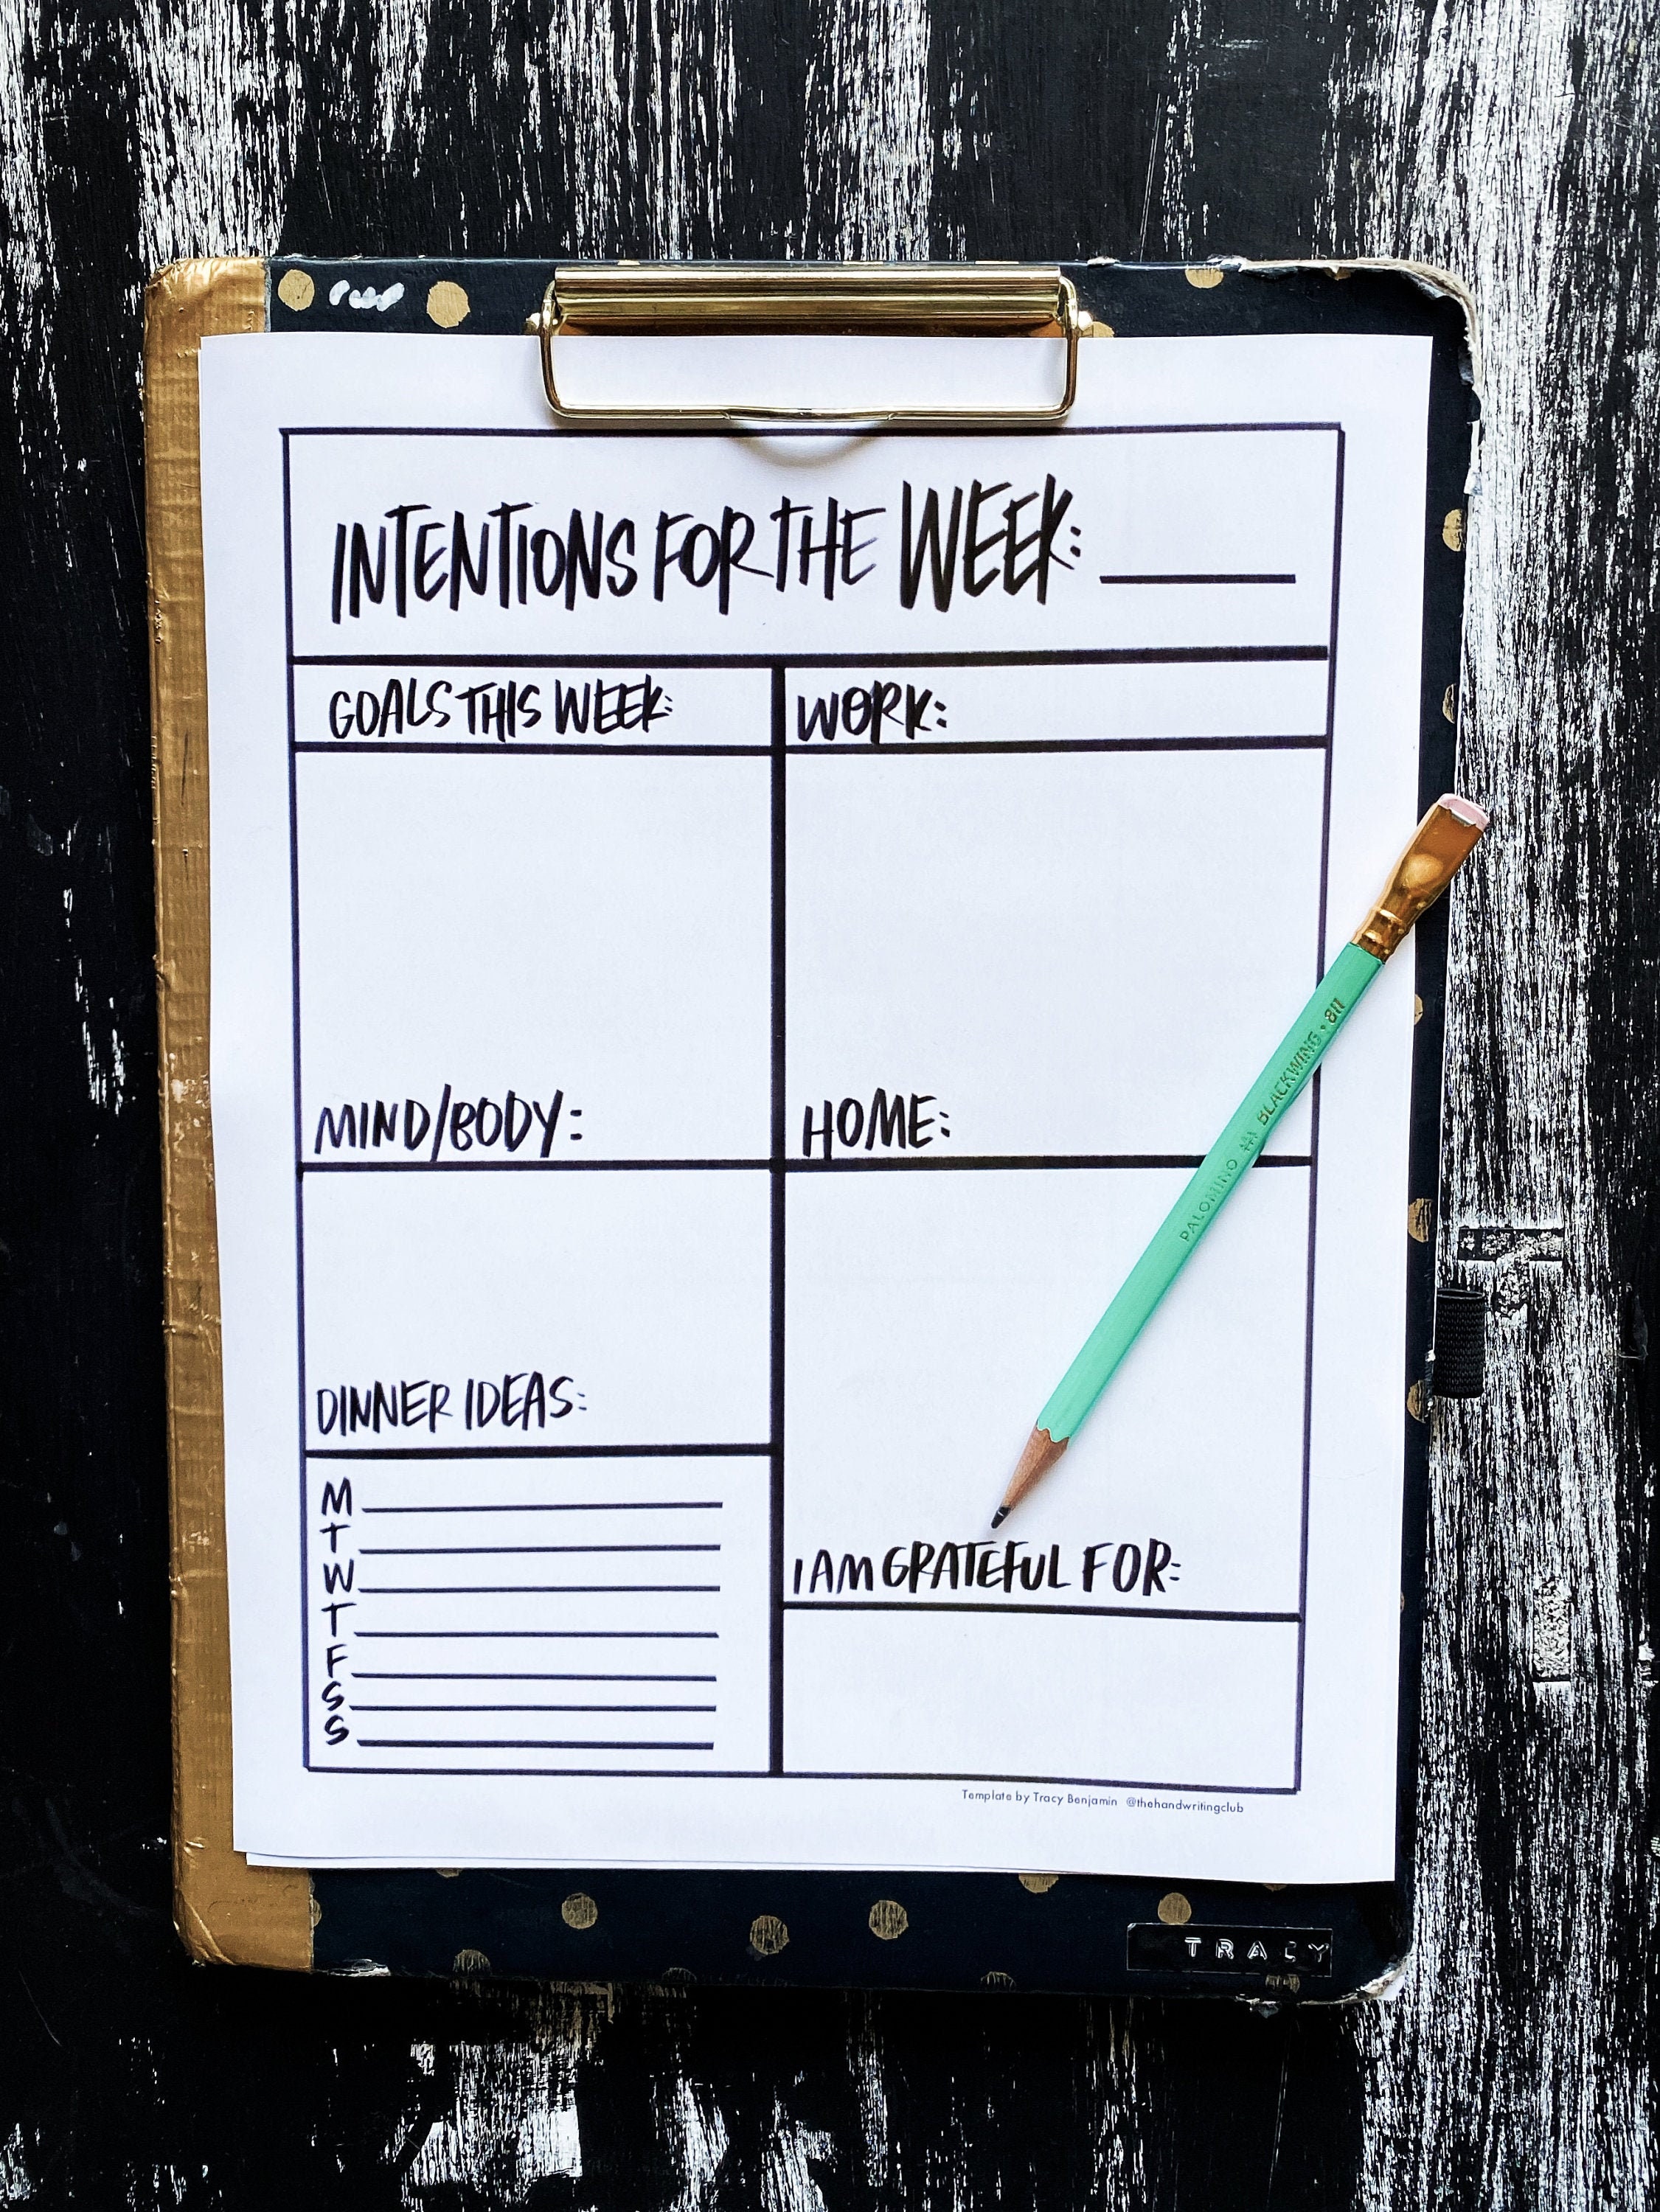 INTENTIONS FOR THE WEEK:
GOALS THIS WEEK:
WORK:
MIND/BODY:
HOME:
DINNER IDEAS:
M
T
W
T
F
S
S
I AM GRATEFUL FOR:
Template by Tracy Benjamin @thehandwritingclub
PALOMINO BLACKWING • 811
TRACY